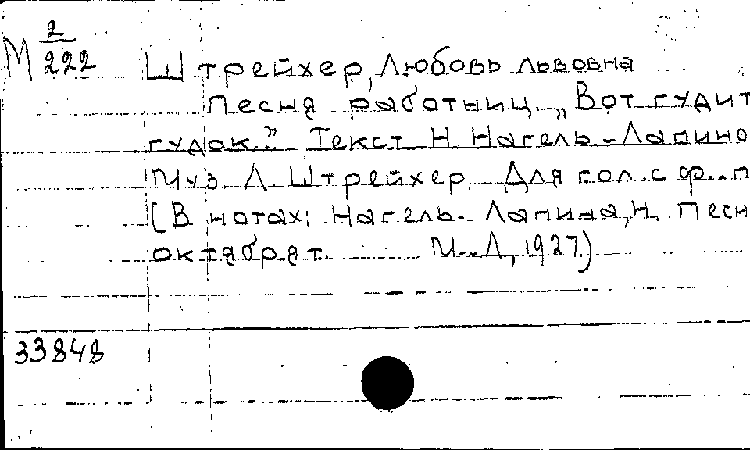 М 2/222
Штрейхер, Любовь Львовна
Песня работниц. „Вот гудит
гудок." Текст Н. Нагель-Лапино
Муз. Л. Штрейхер. Для гол. с ф.-п
[В нотах: Нагель-Лапина, Н. Песн
октябрят. М.-Л., 1927.)
33848